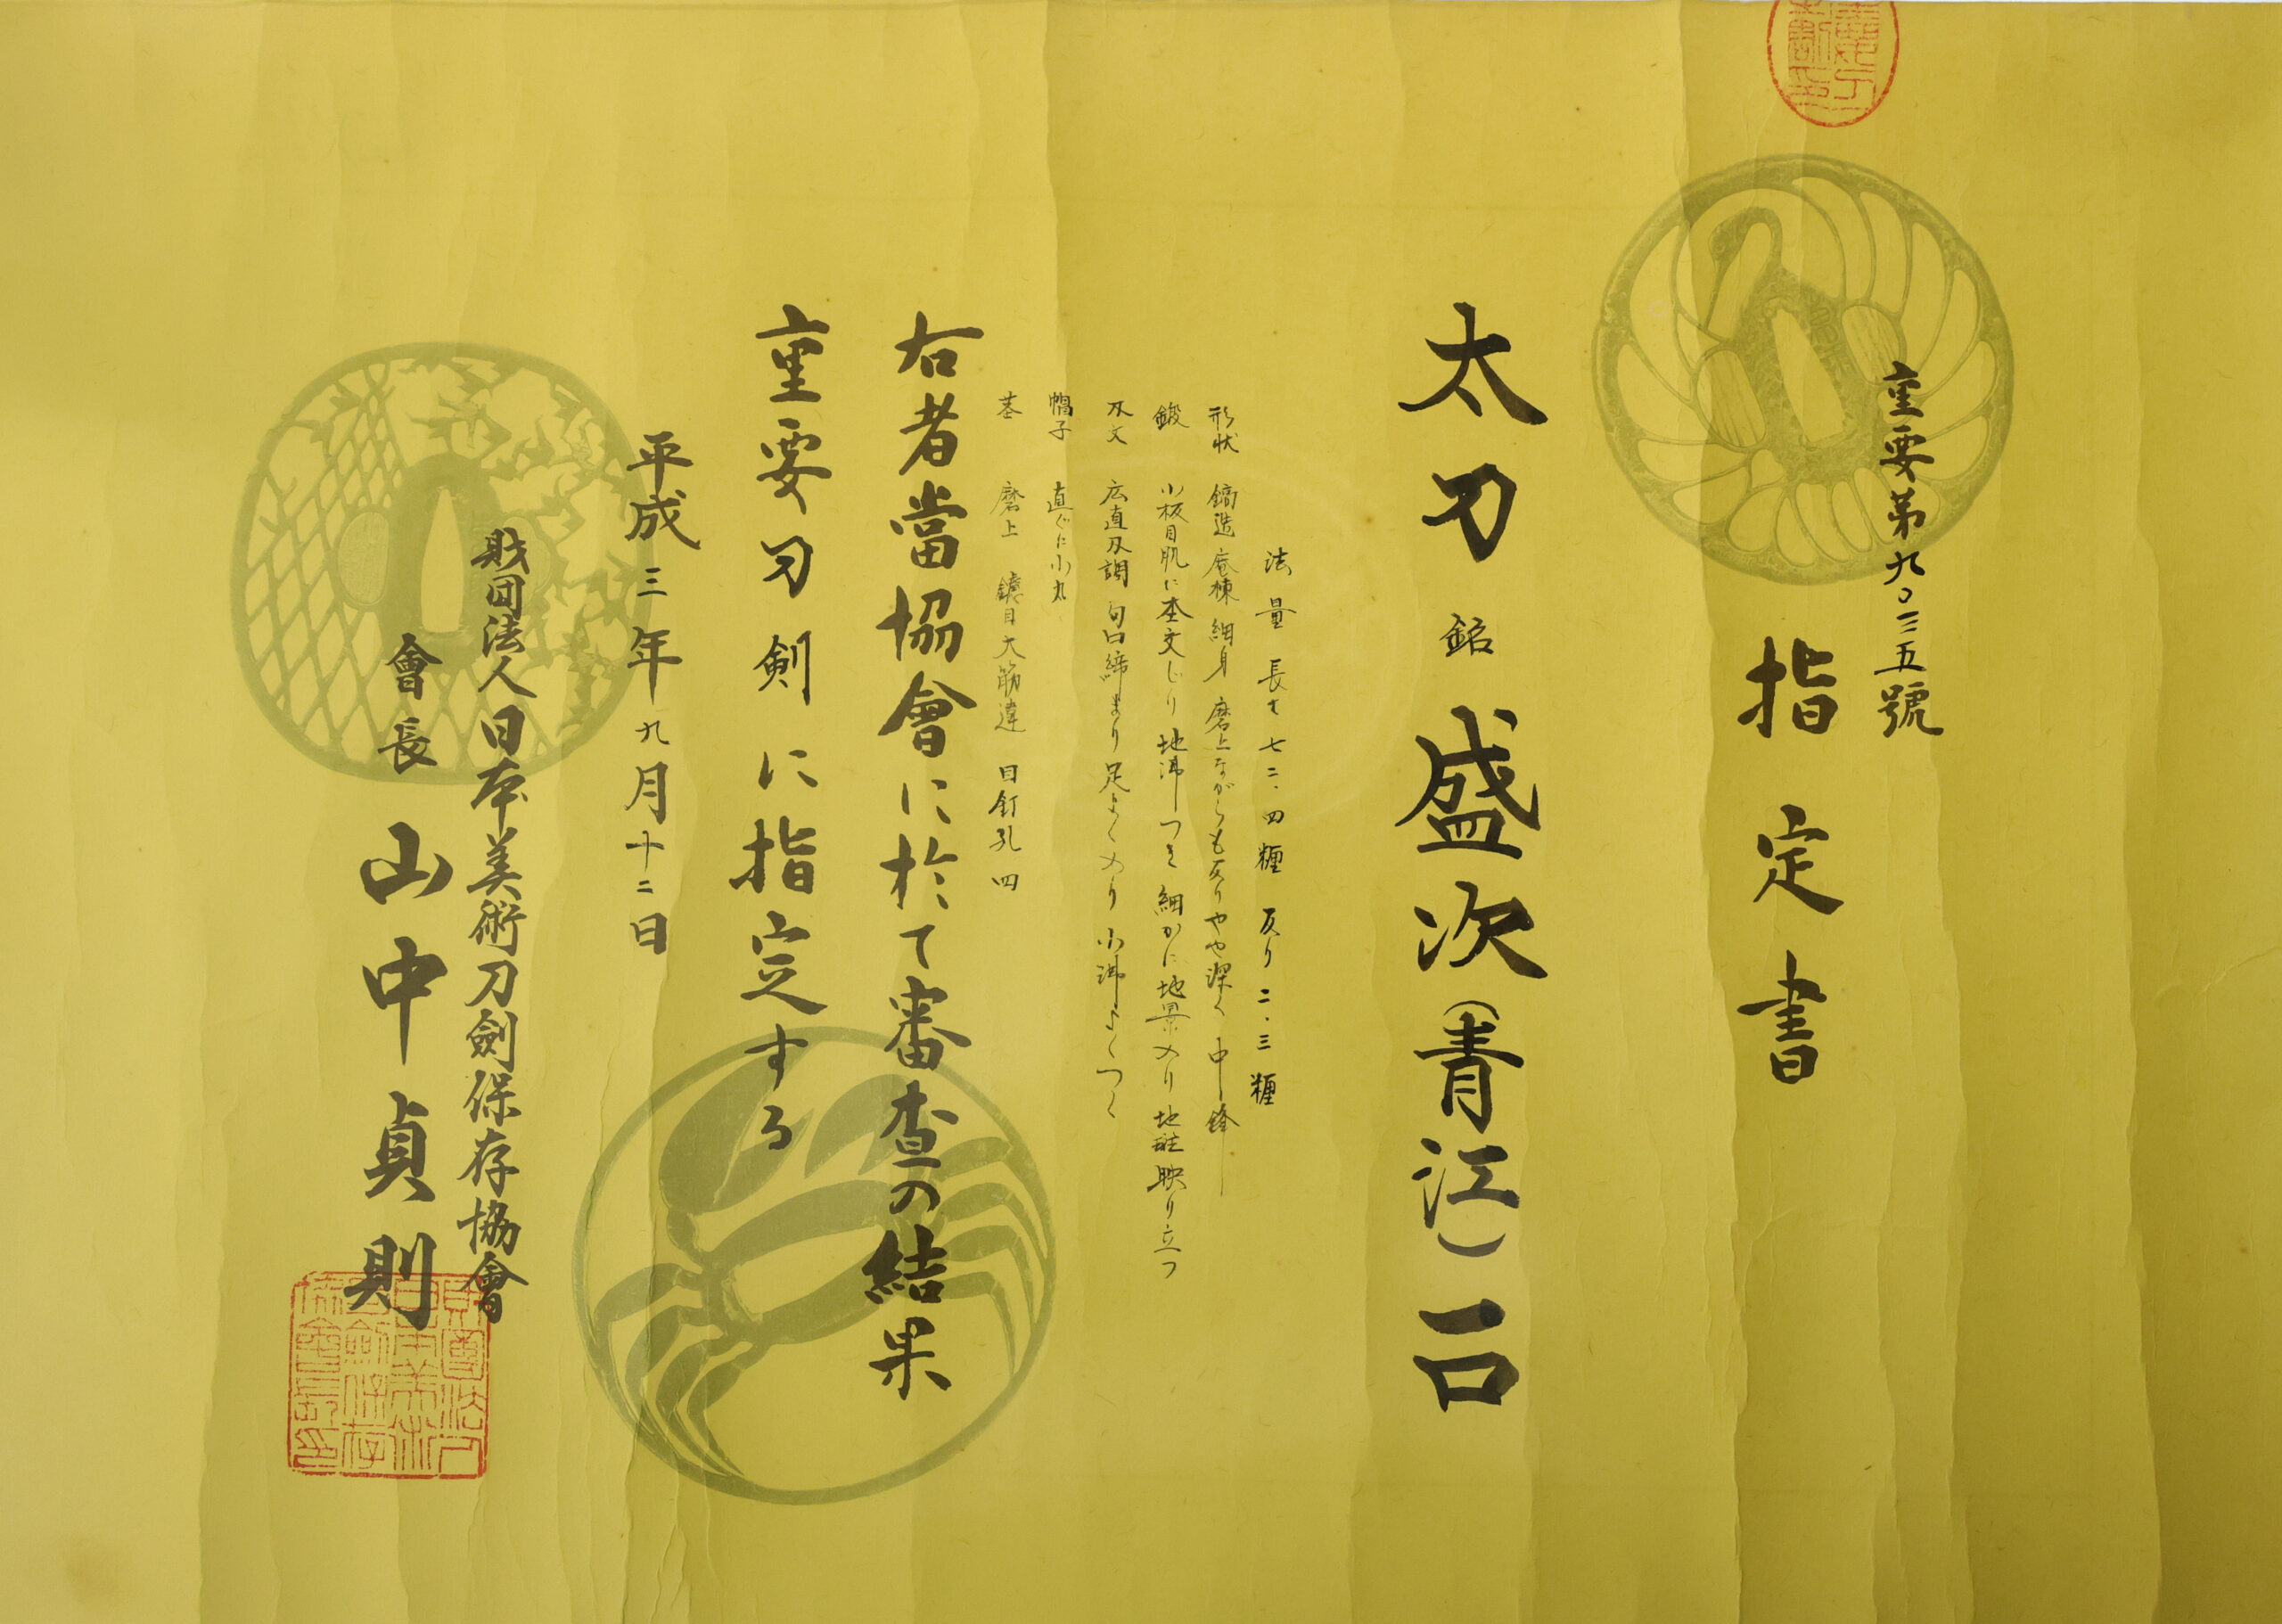 重要第九〇三五號
指定書
太刀 銘 盛次(青江) 一口
法量 長サ 七二.四糎 反り 二.三糎
形状 鎬造 庵棟 細身 磨上ながらも反りやや深く 中鋒
鍛 小板目肌に杢交じり 地沸つき 細かに地景入り 地斑映り立つ
刃文 広直刃調 匂口締まり 足よく入り 小沸よくつく
帽子 直ぐに小丸
茎 磨上 鑢目大筋違 目釘孔四
右者當協會に於て審査の結果
重要刀剣に指定する
平成三年九月十二日
財団法人日本美術刀劍保存協會
會長 山中貞則